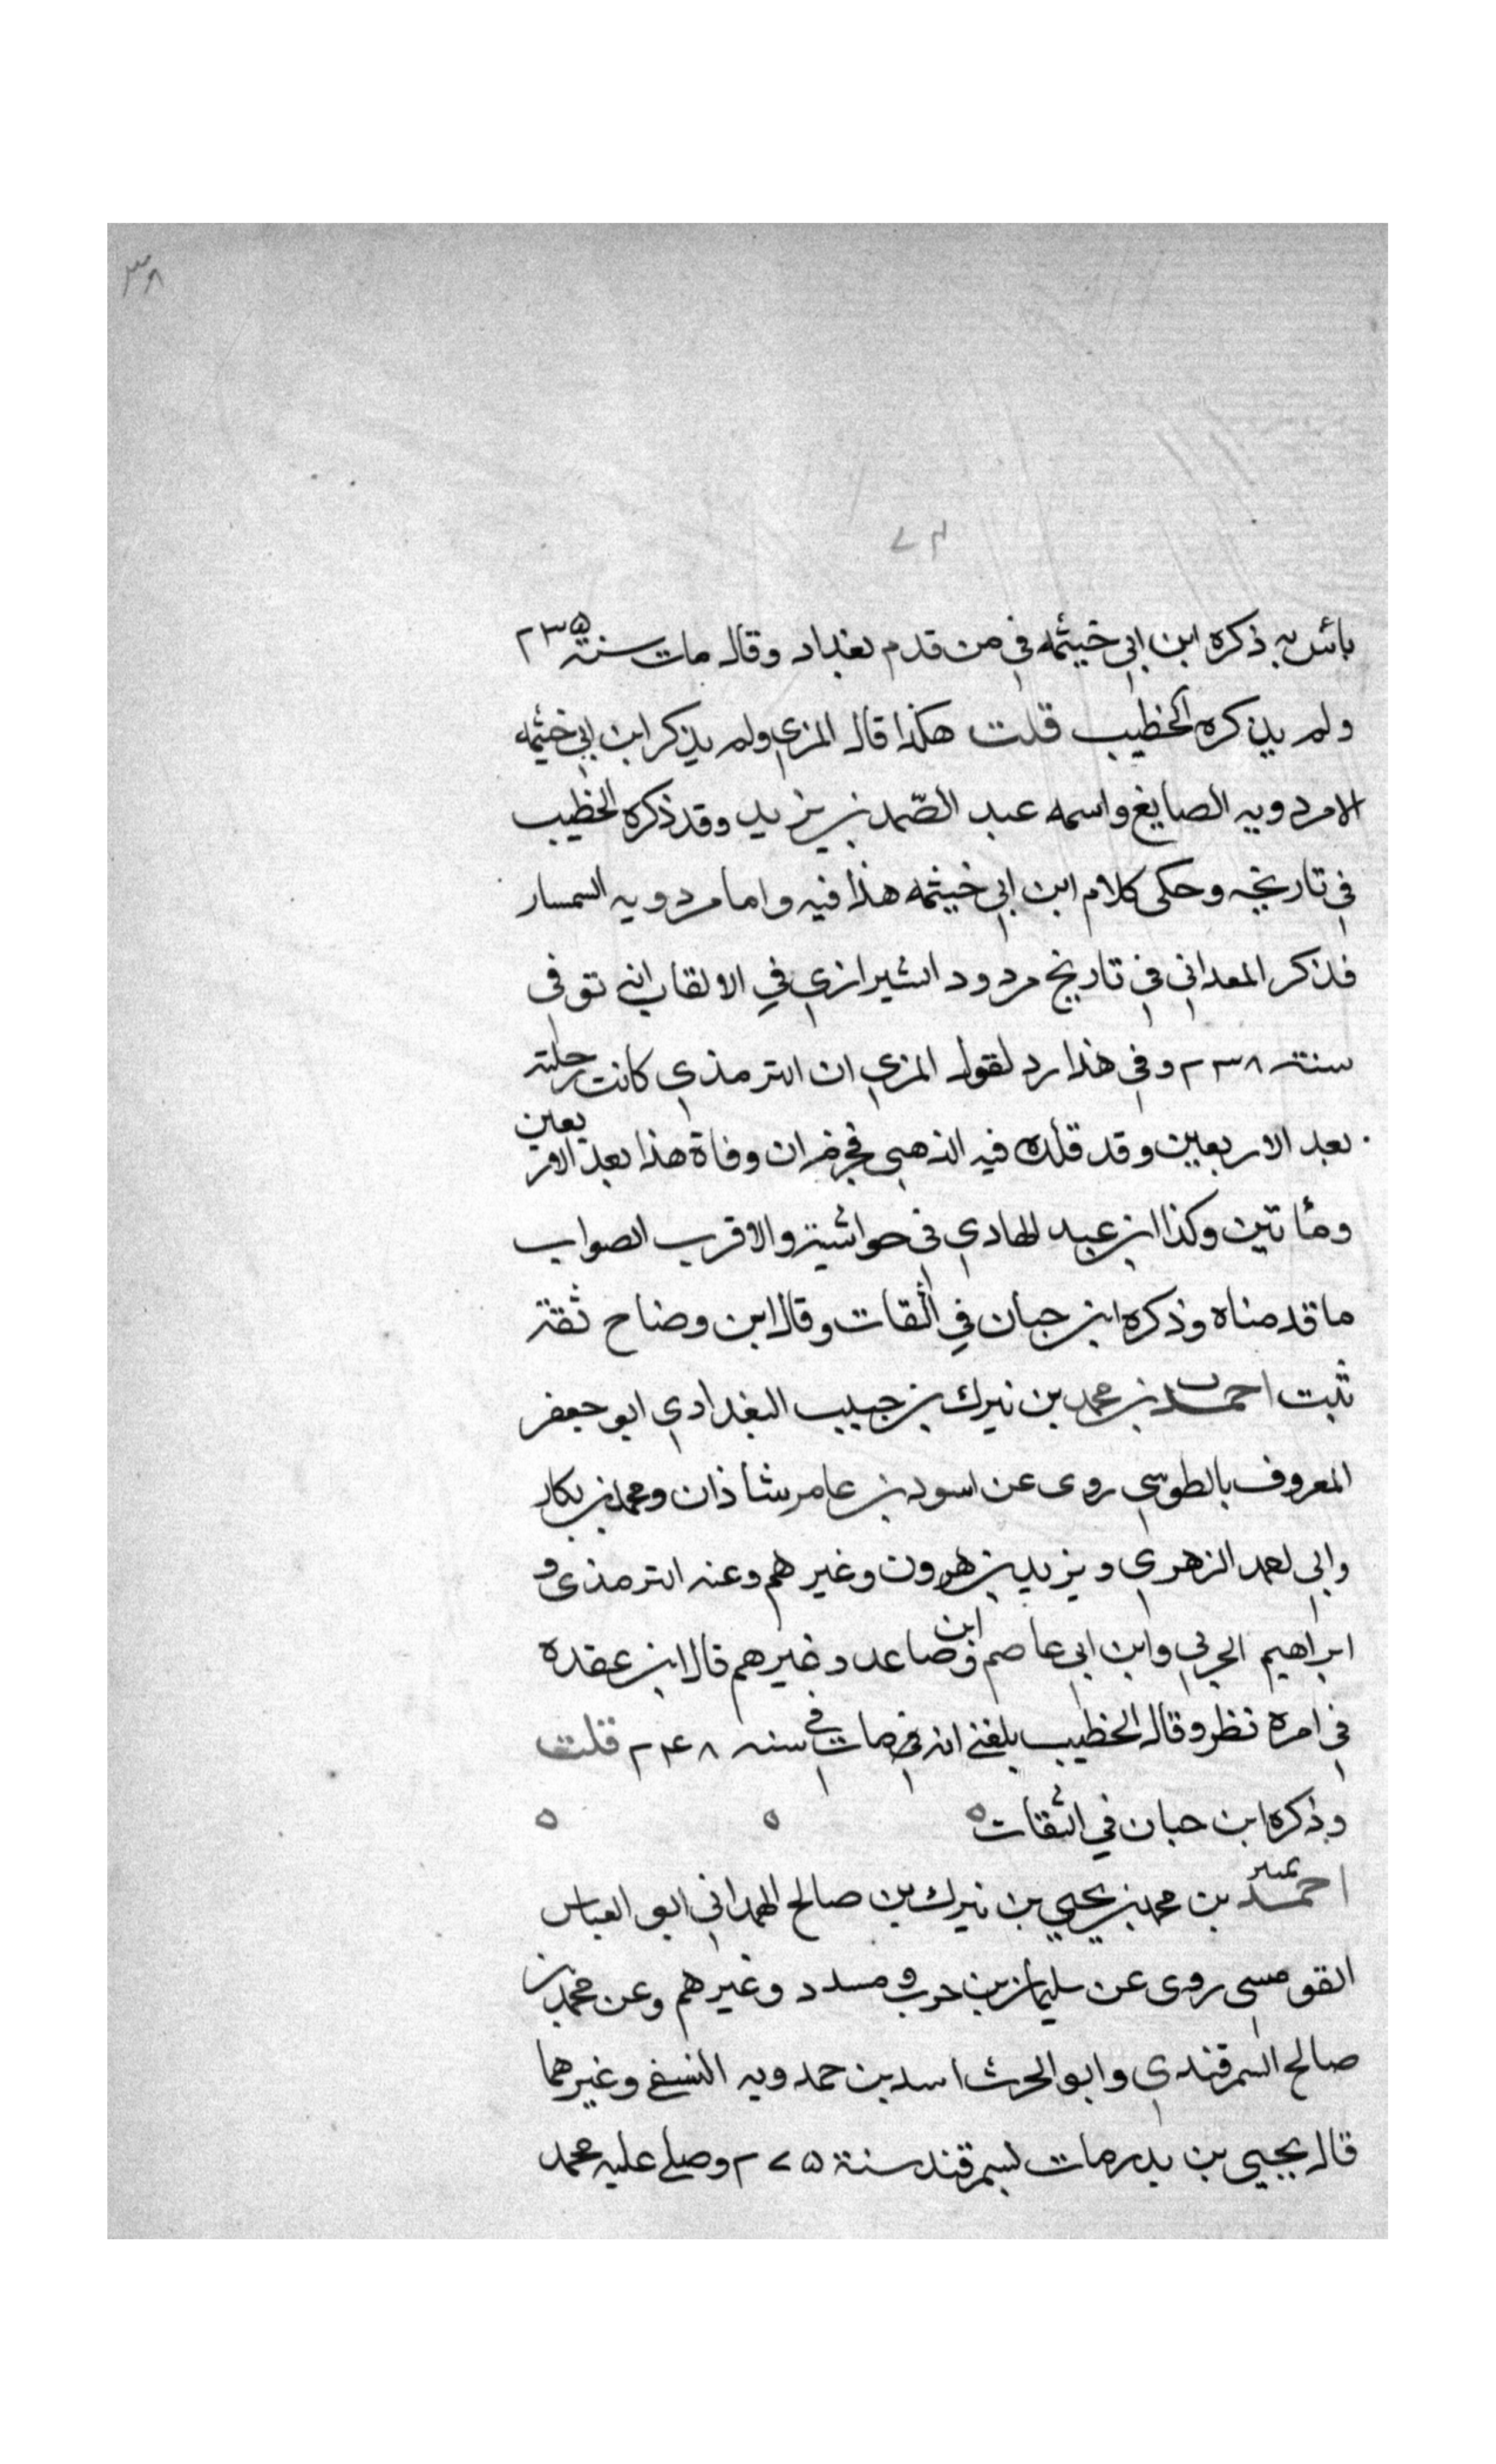 ٣٨
٧٣
بأس به ذكره ابن ابي خيثمه في من قدم بغداد وقال مات سنة ٢٣٥
ولم يذكره الخطيب قلت هكذا قال المزي ولم يذكر ابن ابي خيثمه
الا مردويه الصايغ واسمه عبد الصّمد بن يزيد وقد ذكره الخطيب
في تاريخه وحكى كلام ابن ابي خيثمه هذا فيه واما مردويه السمسار
فذكر المعداني في تاريخ مرو والشيرازي في الالقاب انه توفى
سنة ٢٣٨ وفي هذا رد لقول المزي ان الترمذي كانت رحلته
بعد الاربعين وقد قلده فيه الذهبي فجزم ان وفاة هذا بعد الاربعين
ومأتين وكذا ابن عبد الهادي في حواشيه والاقرب الصواب
ما قدمناه وذكره ابن حبان في الثقات وقال ابن وضاح ثقة
ثبت احمد بن محمد بن نيرك بن حبيب البغدادي ابو جعفر
المعروف بالطوسي روى عن اسود بن عامر شاذان ومحمد بن بكار
وابي احمد الزهري ويزيد بن هرون وغيرهم وعنه الترمذي و
ابراهيم الحربي وابن ابي عاصم وابن صاعد وغيرهم قال ابن عقده
في امره نظر وقال الخطيب بلغني انه مات في سنه ٢٤٨ قلت
وذكره ابن حبان في الثقات ٥ ٥ ٥
احمد بن محمد بن يحيي بن نيرك بن صالح الهمداني ابو العباس
القومسي روى عن سليمان بن حرب ومسدد وغيرهم وعن محمد بن
صالح السمرقندي وابو الحرث اسد بن حمدويه النسفي وغيرهما
قال يحيي بن بدر مات بسمرقند سنة ٢٧٥ وصلى عليه محمد